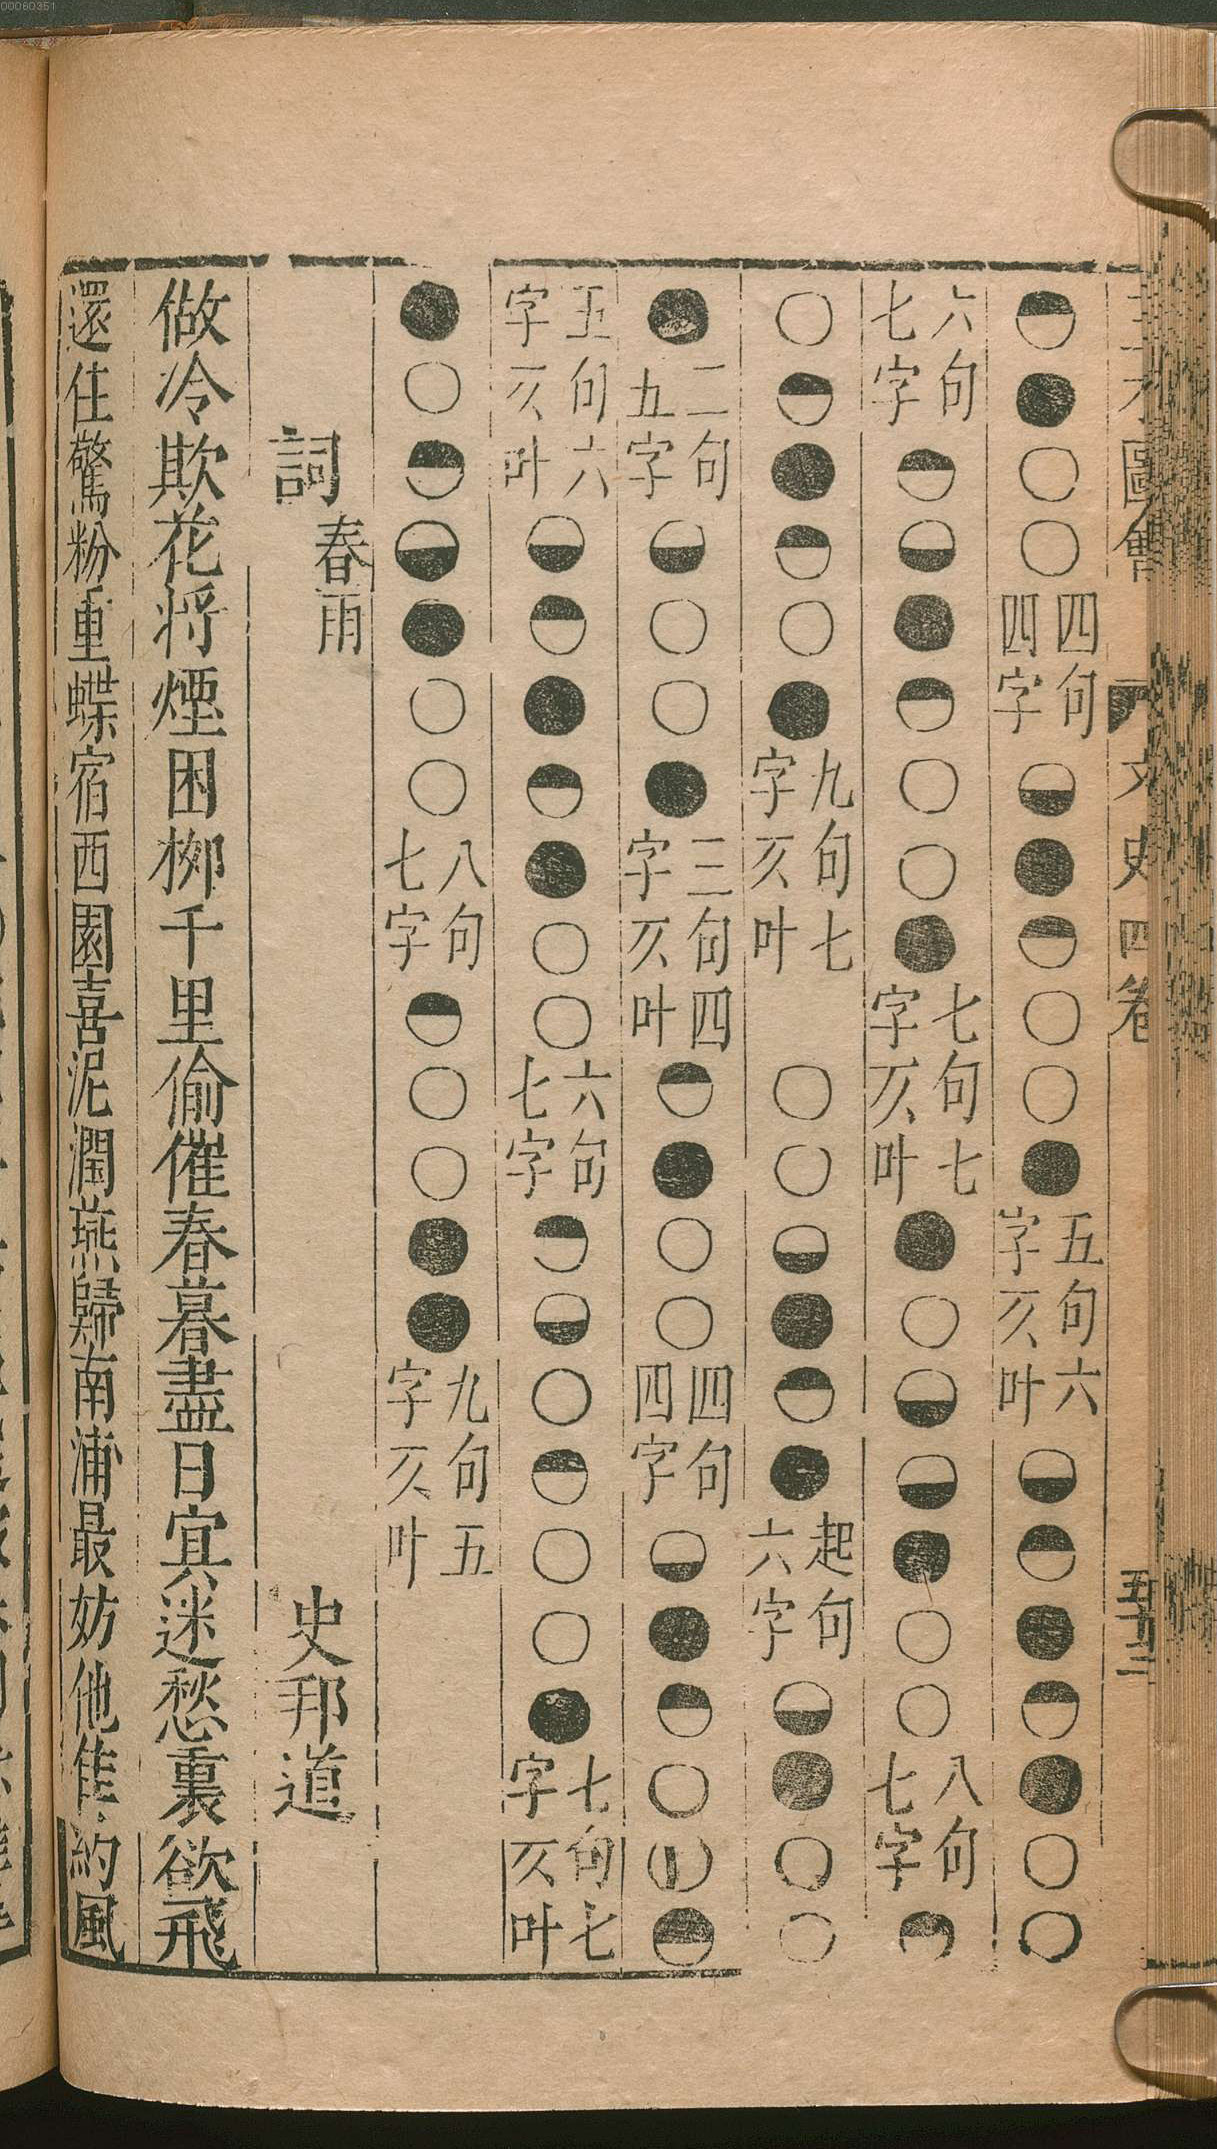 00060351
圖會 文史四卷 五十三
四句四字 五句六字仄叶
六句七字 七句七字仄叶 八句七字
九句七字仄叶 起句六字
二句五字 三句四字仄叶 四句四字
五句六字仄叶 六句七字 七句七字仄叶
八句七字 九句五字仄叶
詞 春雨 史邦道
做冷欺花将煙困桞千里偷催春暮盡日冥迷愁裏欲飛
還住驚粉重蝶宿西園喜泥潤燕歸南浦最妨他佳約風